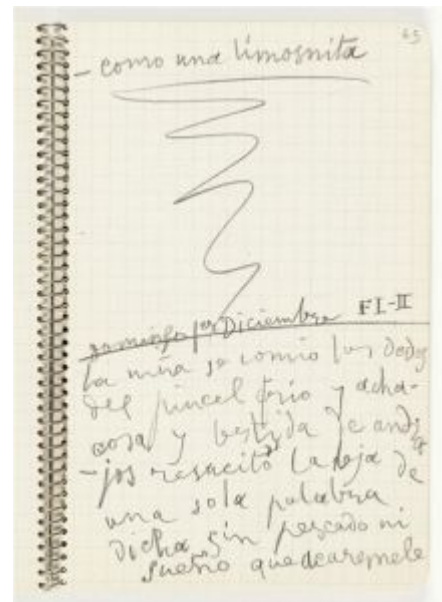 65
- como una limosnita
domingo 1er Diciembre FI-II
la niña se comio los dedos
del pincel frio y acha-
cosa y vestida de andr
-jos resucitó la oja de
una sola palabra
dicha sin pescado ni
sueño